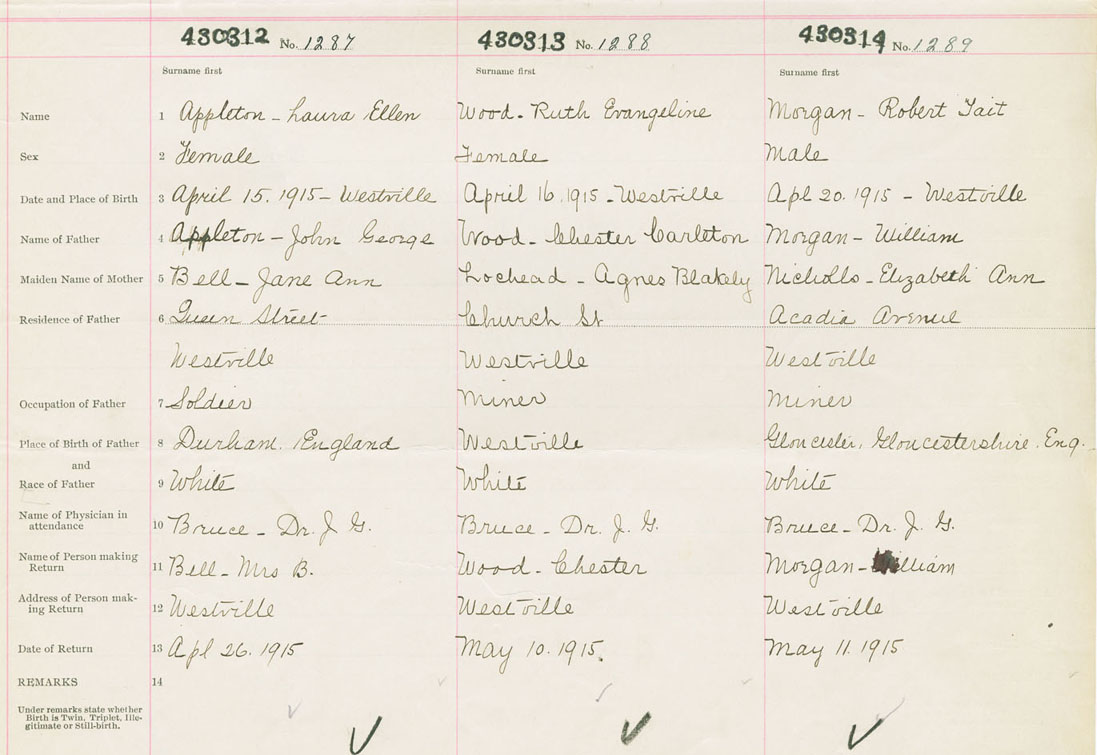 430312 No. 1287 430313 No. 1288 430314 No. 1289
Surname first Surname first Surname first
Name 1 Appleton - Laura Ellen Wood - Ruth Evangeline Morgan - Robert Tait
Sex 2 Female Female Male
Date and Place of Birth 3 April 15. 1915 - Westville April 16. 1915 - Westville Apl 20. 1915 - Westville
Name of Father 4 Appleton - John George Wood - Chester Carleton Morgan - William
Maiden Name of Mother 5 Bell - Jane Ann Lochead - Agnes Blakely Nicholls - Elizabeth Ann
Residence of Father 6 Queen Street Church St Acadia Avenue
Westville Westville Westville
Occupation of Father 7 Soldier Miner Miner
Place of Birth of Father 8 Durham, England Westville Gloucester, Gloucestershire. Eng.
and
Race of Father 9 White White White
Name of Physician in
attendance 10 Bruce - Dr. J. G. Bruce - Dr. J. G. Bruce - Dr. J. G.
Name of Person making
Return 11 Bell - Mrs B. Wood - Chester Morgan - William
Address of Person mak-
ing Return 12 Westville Westville Westville
Date of Return 13 Apl 26. 1915 May 10. 1915. May 11. 1915
REMARKS 14
Under remarks state whether
Birth is Twin, Triplet, Ille-
gitimate or Still-birth.